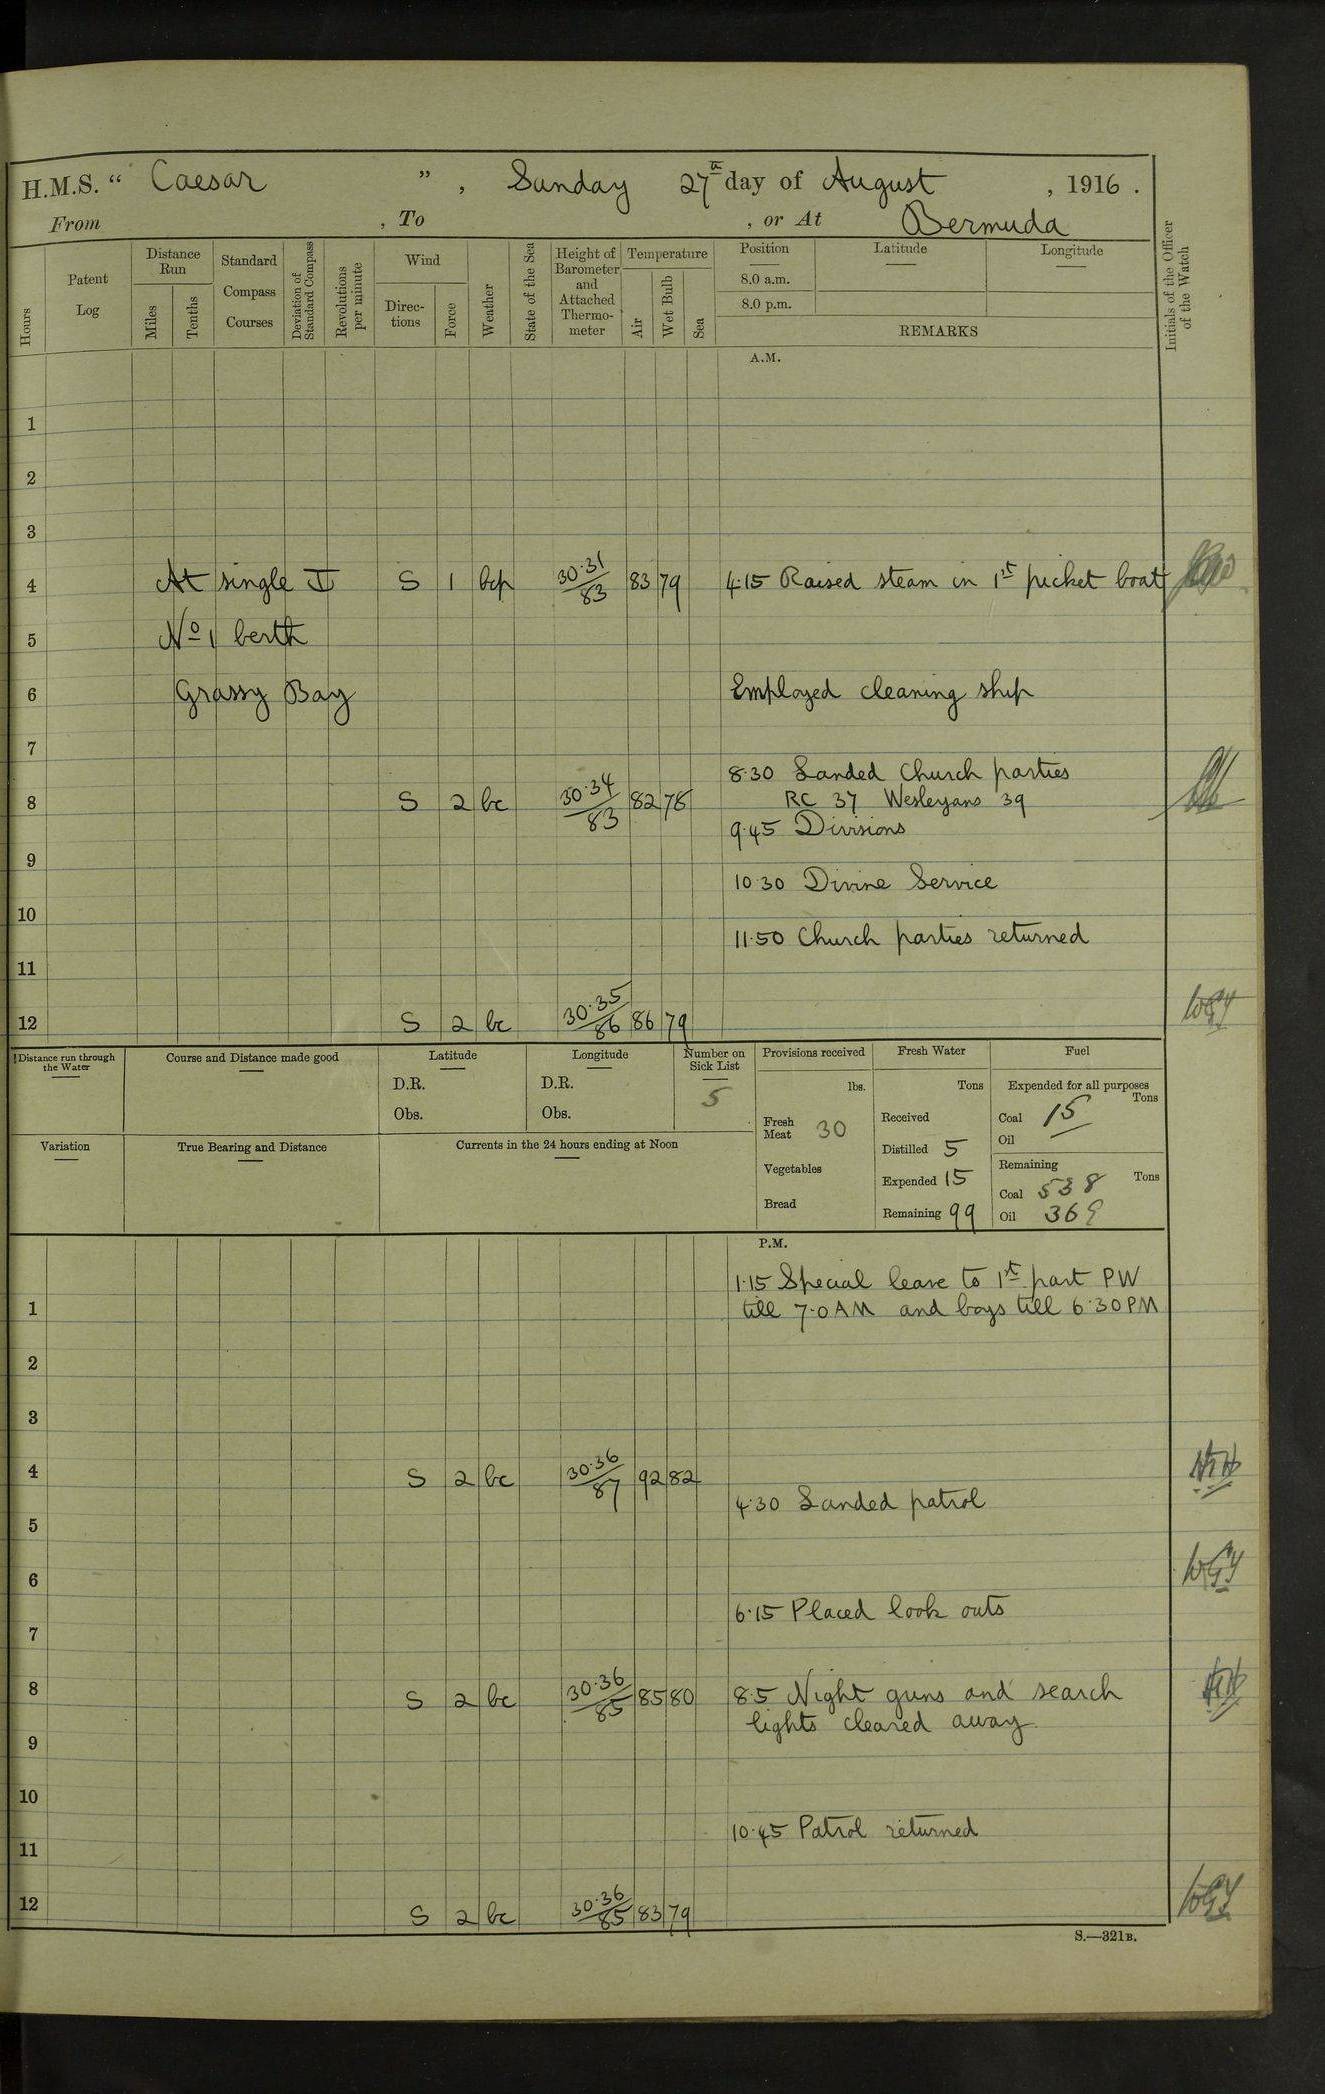 H.M.S. “ Caesar ” , Sunday 27th day of August , 1916 .
From , To , or At Bermuda
Hours
Patent Log
Distance Run
Miles
Tenths
Standard Compass Courses
Deviation of Standard Compass
Revolutions per minute
Wind
Direc-tions
Force
Weather
State of the Sea
Height of Barometer and Attached Thermo-meter
Temperature
Air
Wet Bulb
Sea
Position
8.0 a.m.
8.0 p.m.
Latitude
Longitude
REMARKS
Initials of the Officer of the Watch
A.M.
1
2
3
4 At single S 1 bcp 30.31/83 83 79 4.15 Raised steam in 1st picket boat
5 No 1 berth
6 Grassy Bay Employed cleaning ship
7
8.30 Landed Church parties
8 S 2 bc 30.34/83 82 78 RC 37 Wesleyans 39
9.45 Divisions
9
10.30 Divine Service
10
11.50 Church parties returned
11
12 S 2 bc 30.35/86 86 79 WGY
Distance run through the Water
Course and Distance made good
Latitude
D.R.
Obs.
Longitude
D.R.
Obs.
Number on Sick List
5
Variation
True Bearing and Distance
Currents in the 24 hours ending at Noon
Provisions received
lbs.
Fresh Meat 30
Vegetables
Bread
Fresh Water
Tons
Received
Distilled 5
Expended 15
Remaining 99
Fuel
Expended for all purposes
Tons
Coal 15
Oil
Remaining
Tons
Coal 538
Oil 369
P.M.
1.15 Special leave to 1st part PW
1 till 7.0 AM and boys till 6.30 PM
2
3
4 S 2 bc 30.36/87 92 82
4.30 Landed patrol
5
6 WGY
6.15 Placed look outs
7
8 S 2 bc 30.36/85 85 80 8.5 Night guns and search
lights cleared away.
9
10
10.45 Patrol returned
11
12 S 2 bc 30.36/85 83 79 WGY
S.—321B.